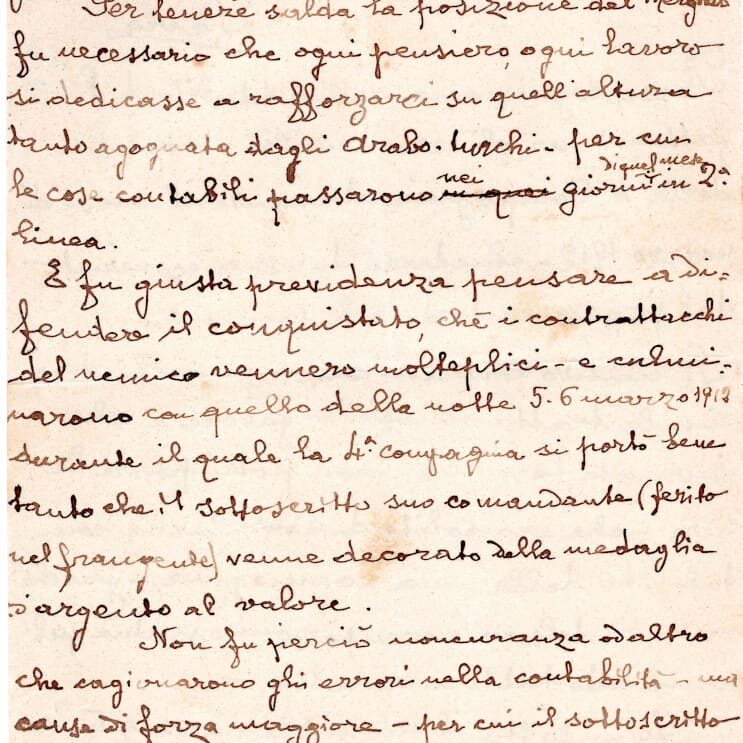 Per tenere salda la posizione del Mergheb
fu necessario che ogni pensiero, ogni lavoro
si dedicasse a rafforzarci su quell'altura
tanto agognata dagli Arabo-turchi - per cui
le cose contabili passarono in quei nei giorni di quel mese in 2ª
linea.
E fu giusta previdenza pensare a di=
fendere il conquistato, chè i contrattacchi
del nemico vennero molteplici - e culmi=
narono con quello della notte 5-6 marzo 1912
durante il quale la 4ª compagnia si portò bene
tanto che il sottoscritto suo comandante (ferito
nel frangente) venne decorato della medaglia
d'argento al valore.
Non fu perciò noncuranza od altro
che cagionarono gli errori nella contabilità - ma
cause di forza maggiore - per cui il sottoscritto